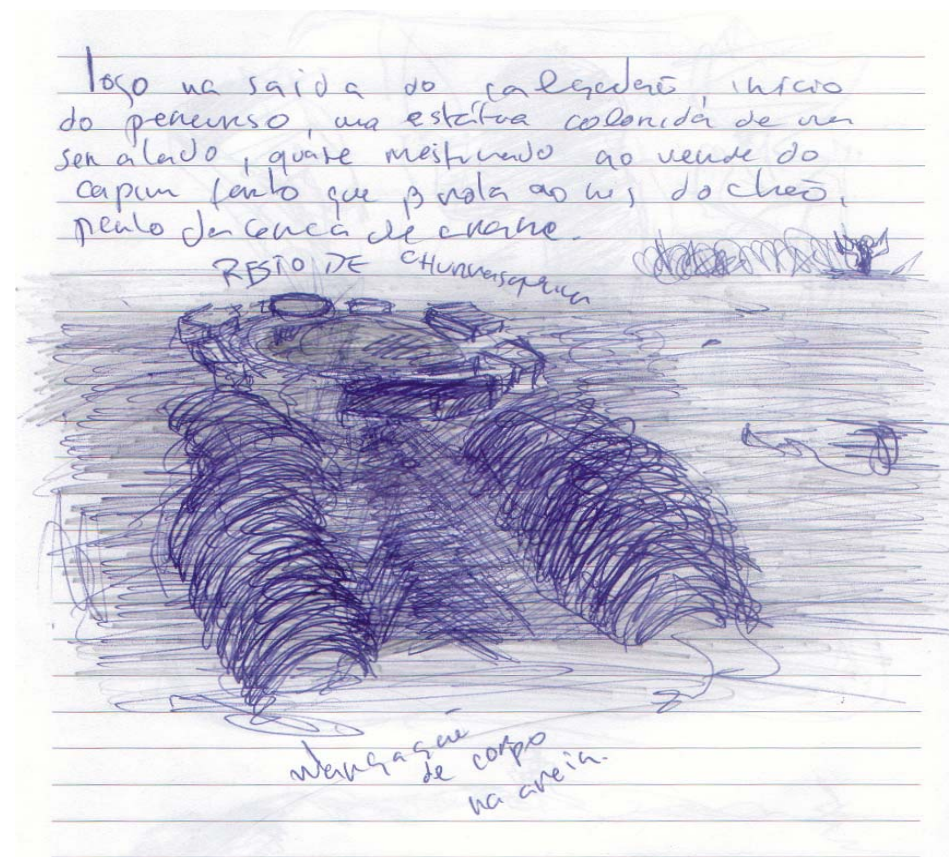 logo na saída do calçadão, início
do percurso, uma estátua colorida de um
ser alado, quase misturado ao verde do
capim farto que brota ao rés do chão,
perto da cerca de arame.
RESTO DE CHURRASQUEIRA
de corpo
na areia.